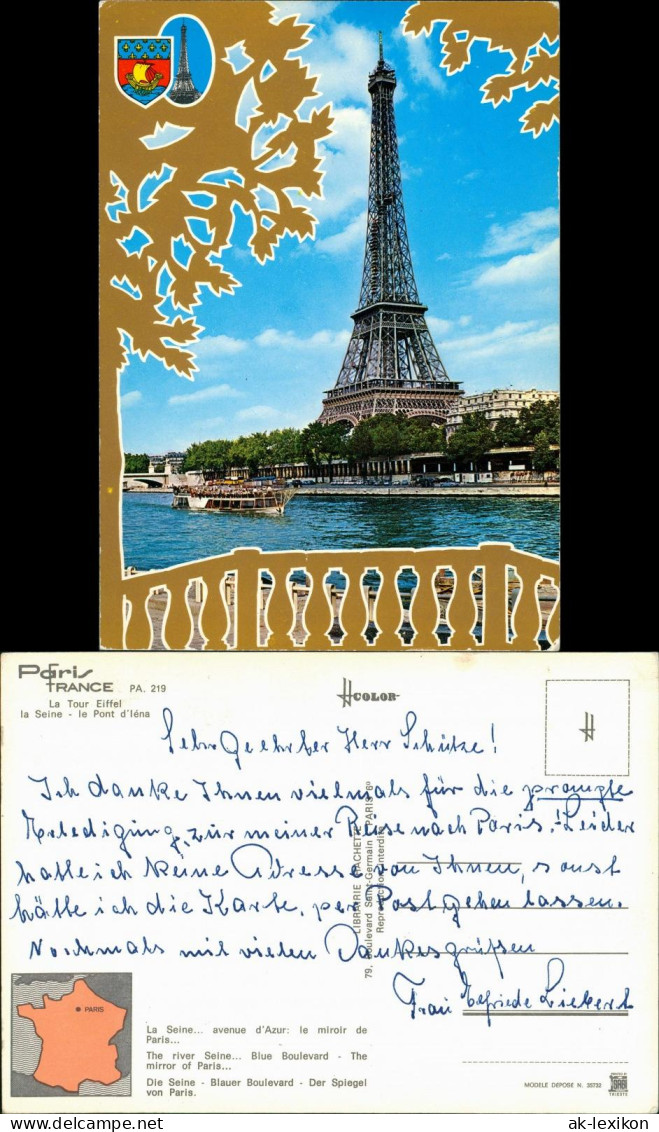 Paris
FRANCE PA. 219
La Tour Eiffel
la Seine - le Pont d'Iéna
COLOR
Sehr geehrter Herr Schütze!
Ich danke Ihnen vielmals für die prompte
Erledigung, zur meiner Reise nach Paris! Leider
hatte ich keine Adresse von Ihnen, sonst
hätte ich die Karte, per Post gehen lassen.
Nochmals mit vielen Dankesgrüßen
Frau Elfriede Liekert
LIBRAIRIE HACHETTE
79, Boulevard Saint-Germain PARIS 6e
Reproduction interdite
PARIS
La Seine... avenue d'Azur: le miroir de
Paris...
The river Seine... Blue Boulevard - The
mirror of Paris...
Die Seine - Blauer Boulevard - Der Spiegel
von Paris.
MODELE DEPOSE N. 20732
TRIESTE
ak-lexikon